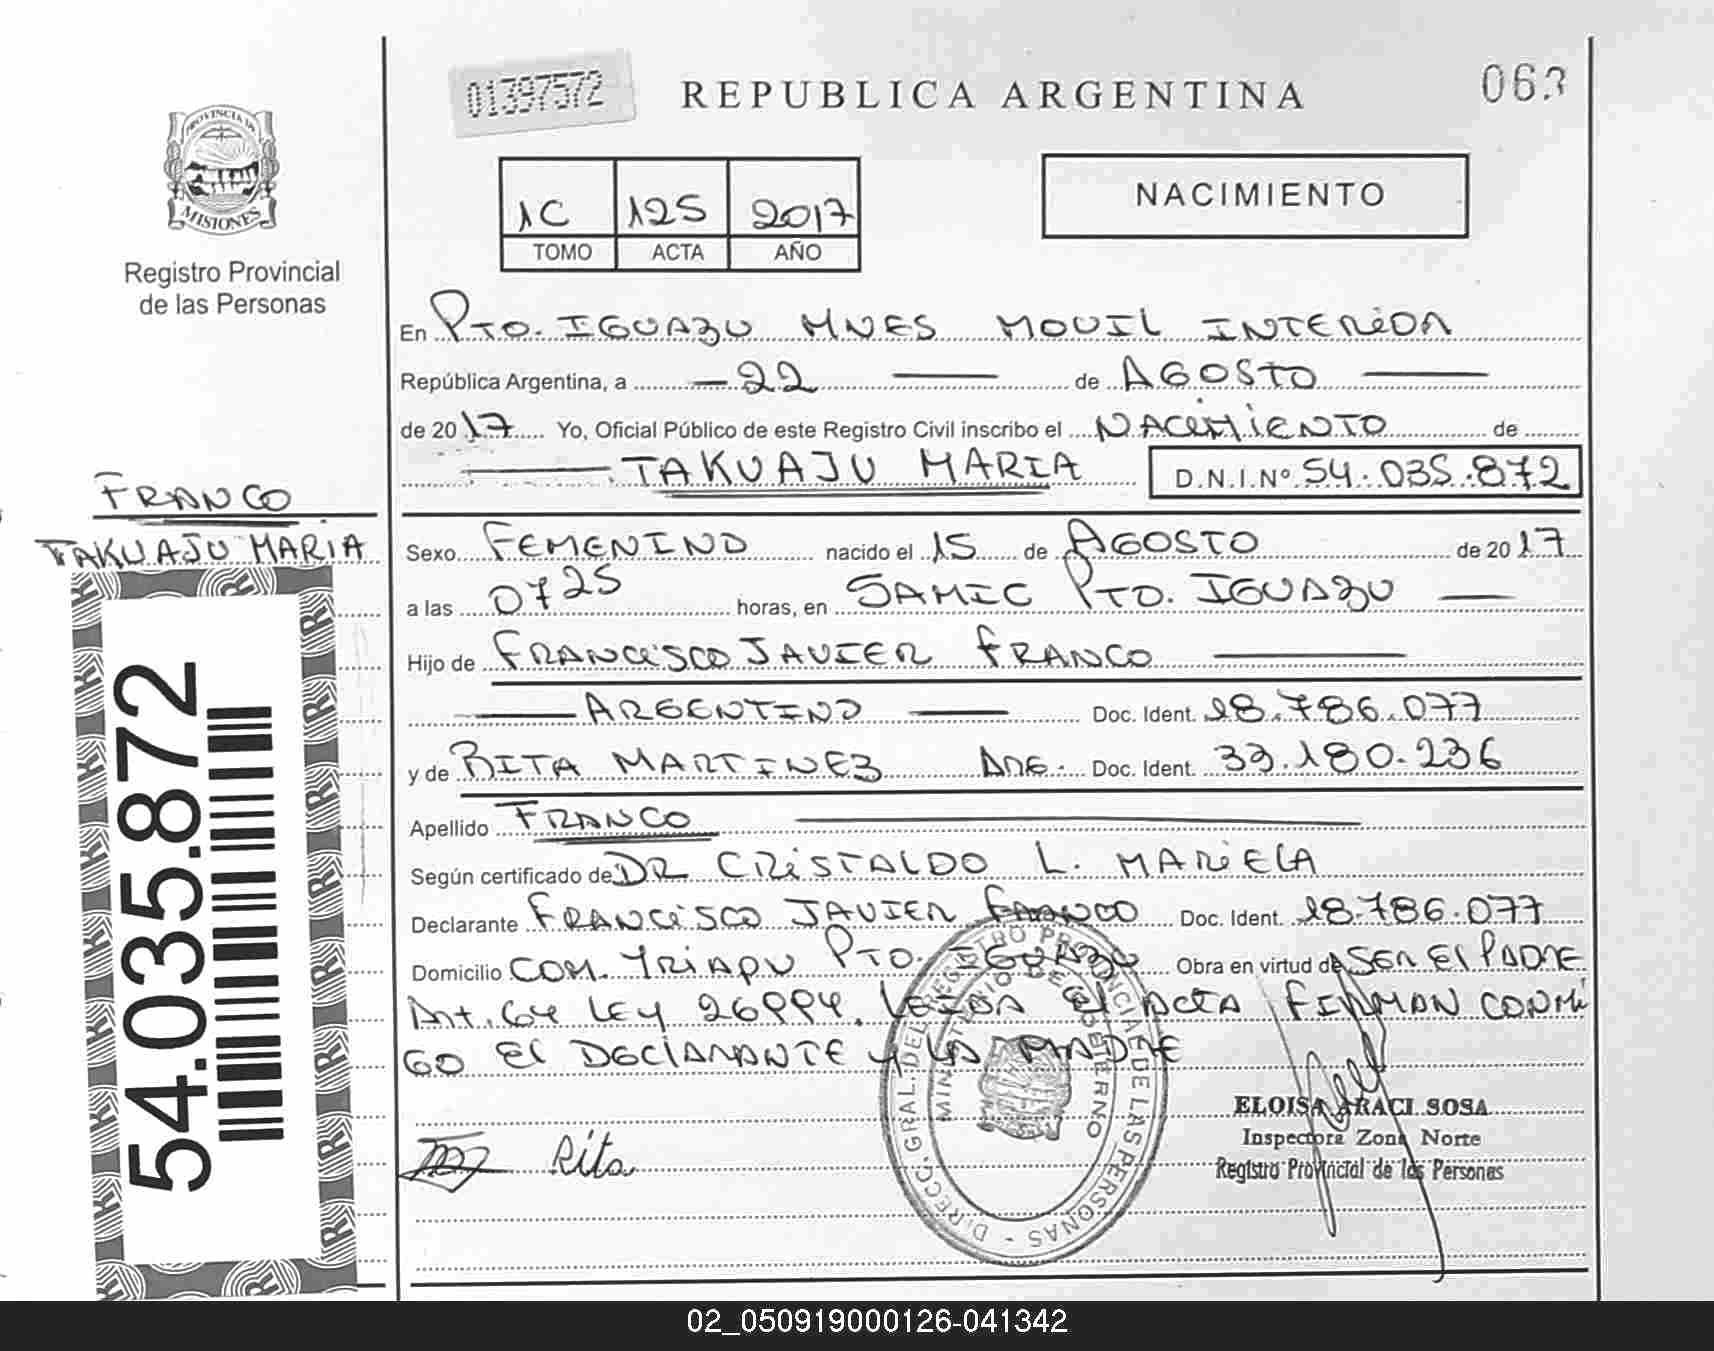 01397572
REPUBLICA ARGENTINA
063
PROVINCIA DE
MISIONES
Registro Provincial
de las Personas
1C 125 2017
TOMO ACTA AÑO
NACIMIENTO
En PTO. IGUAZU MNES MOVIL INTERIOR
República Argentina, a 22 de AGOSTO
de 2017 Yo, Oficial Público de este Registro Civil inscribo el NACIMIENTO de
TAKUAJU MARIA D.N.I.Nº 54.035.872
FRANCO
TAKUAJU MARIA
Sexo FEMENINO nacido el 15 de AGOSTO de 2017
a las 0725 horas, en SAMIC PTO. IGUAZU
Hijo de FRANCISCO JAVIER FRANCO
ARGENTINO Doc. Ident. 18.786.077
y de RITA MARTINEZ ARG. Doc. Ident. 33.180.236
Apellido FRANCO
Según certificado de DR CRISTALDO L. MARIELA
Declarante FRANCISCO JAVIER FRANCO Doc. Ident. 18.786.077
Domicilio COM. YRIAPU PTO. IGUAZU Obra en virtud de SER El PADRE
Art. 64 LEY 26994. LEIDA El ACTA FIRMAN CONMI
GO El DECLARANTE Y LA MADRE
54.035.872
DIRECC. GRAL. DEL REGISTRO PROVINCIAL DE LAS PERSONAS -
MINISTERIO DE GOBIERNO
Rita
ELOISA ARACI SOSA
Inspectora Zona Norte
Registro Provincial de las Personas
02_050919000126-041342